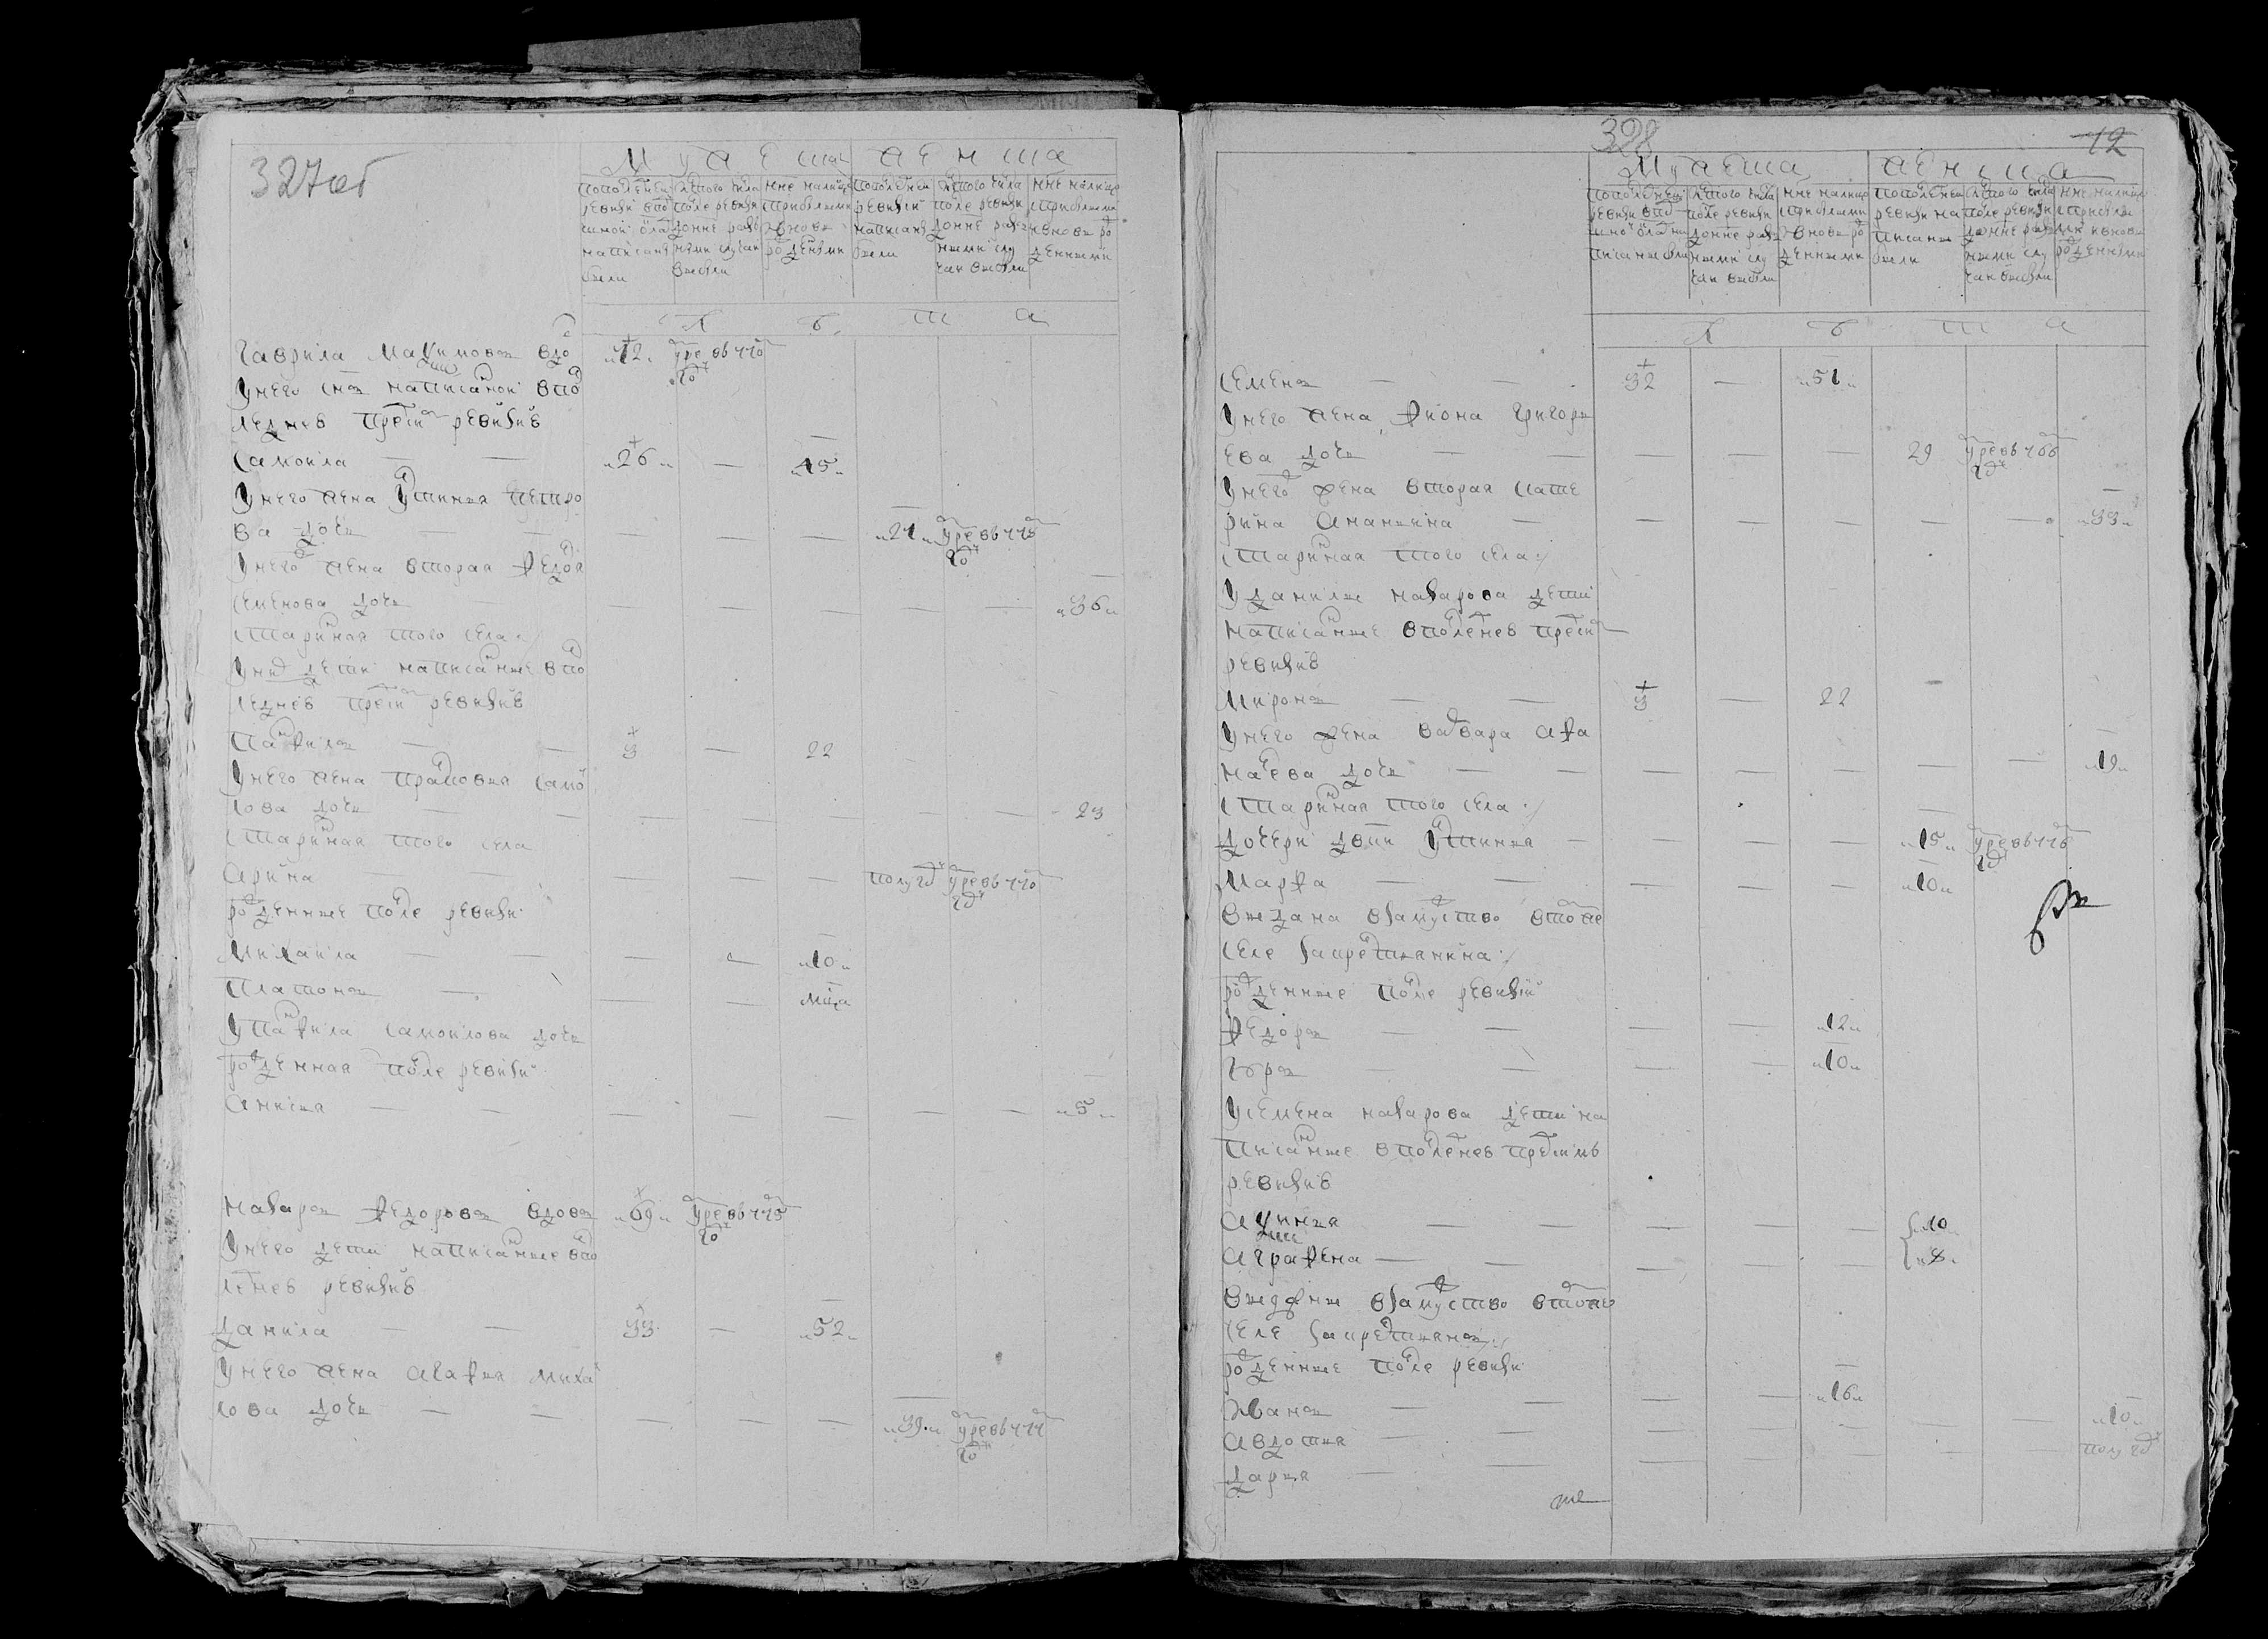 327об
мужеска женска
по последней ревизии в подушной оклад написаны были
из того числа после ревизии до ныне разными случаи выбыли
ныне налицо с прибылыми и вновь рожденными
по последней ревизии написаны были
из того числа после ревизии до ныне разными случаи выбыли
ныне налицо с прибылыми и вновь рожденными
лета
Гаврила Максимовъ вдов 72 умре въ 770 годе
У него снъ написаной в по
следнеъ пред сим ревизиъ
Самоила — 26 — 45
У него жена Устинья Петро
ва дочь — — — 21 умре въ 775 годе
У него жена вторая Федося
Семенова дочь — — — — — 36
Старинная того села
У них дети написанные в по
следнеъ пред сим ревизиъ
Панфилъ — 3 — 22
У него жена Прасковья Само
лова дочь — — — — — 23
Старинная того села
Арина — — — полугод умре въ 770 годе
рожденные после ревизи
Михаила — — — 10
Платонъ — — — мсца
У Панфила Самоилова дочь
рожденная после ревизи
Анисья — — — — — 5
Назаръ Федоровъ вдовъ 69 умре въ 775 годе
У него дети написанные в по
следнеъ ревизиъ
Данила — 33 — 52
У него жена Агафья Михаи
лова дочь — — — 39 умре въ 777 годе
328
12
мужеска женска
по последней ревизи в подушной оклад написаны были
из того числа после ревизи до ныне разными случаи выбыли
ныне налицо с прибылыми и вновь рожденными
по последней ревизи написаны были
из того числа после ревизи до ныне разными случаи выбыли
ныне налицо с прибылыми и вновь рожденными
лета
Семенъ — 32 — 51
У него жена Фиона Григорь
ева дочь — — — 29 умре въ 766 годе
У него жена вторая Кате
рина Ананьина — — — — — 33
Старинная того села
У Данилы Назарова дети
написанные в последнеъ пред сим
ревизиъ
Миронъ — 3 — 22
У него жена Варвара Афа
насева дочь — — — — — 19
Старинная того села
Дочери двии Устинья — — — 15 умре въ 776 годе
Марфа — — — 10
выдана в замужство в том же
селе за крестьянина
рожденные после ревизии
Федоръ — — — 12
Егоръ — — — 10
У Семена Назарова дети на
писанные в последнеъ пред симъ
ревизиъ
Аксинья — — — 10
Аграфена — — — 8
выданы в замужство в том же
селе за крестьянъ
рожденные после ревизи
Иванъ — — — 16
Авдотья — — — — — 10
Дарья — — — — — полугод